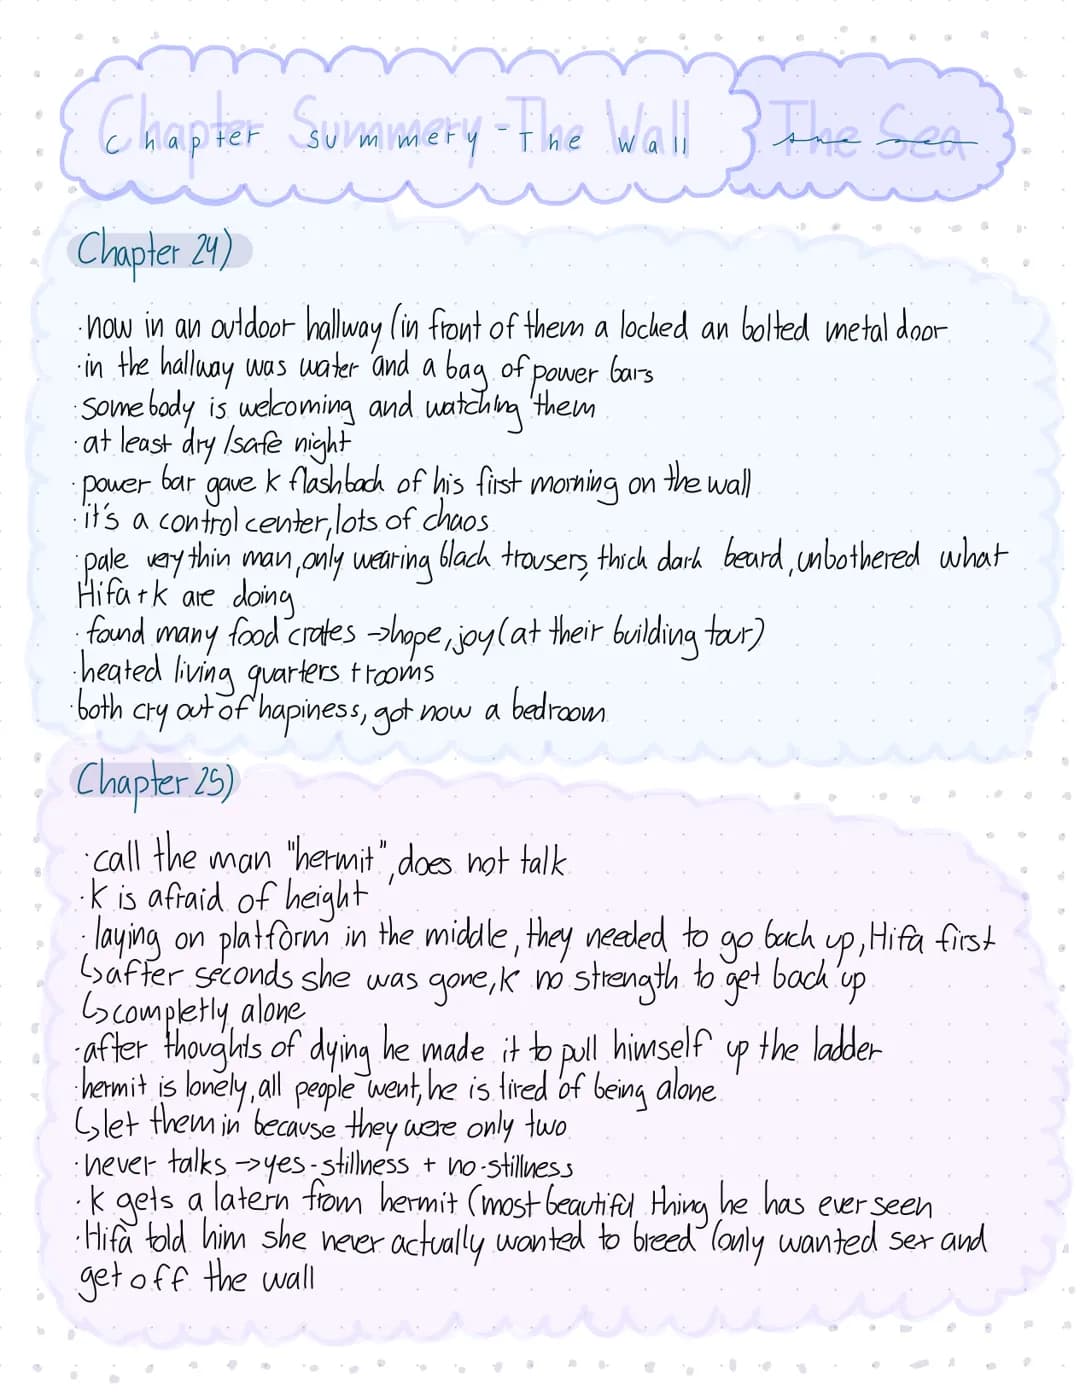 Chapter Summery - The Wall
The Sea
Chapter 24)
· now in an outdoor hallway (in front of them a locked an bolted metal door
· in the hallway was water and a bag of power bars
· somebody is welcoming and watching them
· at least dry /safe night
· power bar gave K flashback of his first morning on the wall
· it's a control center, lots of chaos
· pale very thin man, only wearing black trousers, thick dark beard, unbothered what
Hifa + K are doing
· found many food crates → hope, joy (at their building tour)
· heated living quarters + rooms
· both cry out of hapiness, got now a bedroom
Chapter 25)
· call the man "hermit", does not talk
· K is afraid of height
· laying on platform in the middle, they needed to go back up, Hifa first
↳ after seconds she was gone, K no strength to get back up
↳ completly alone
· after thoughts of dying he made it to pull himself up the ladder
· hermit is lonely, all people went, he is tired of being alone
↳ let them in because they were only two
· never talks → yes - stillness + no - stillness
· K gets a latern from hermit (most beautiful thing he has ever seen
· Hifa told him she never actually wanted to breed (only wanted sex and
get off the wall